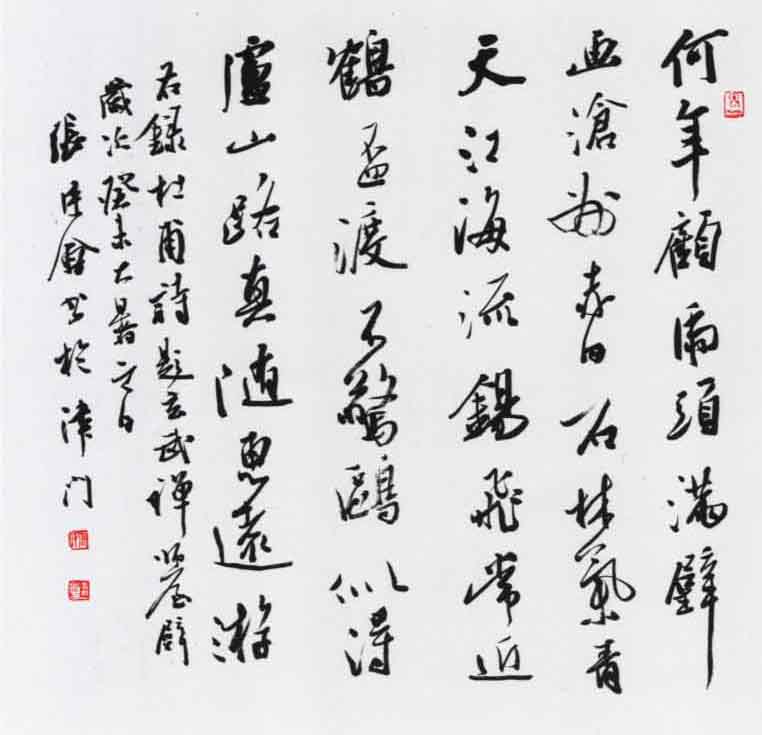 何年顧虎頭滿壁
画滄州赤日石林氣青
天江海流錫飛常近
鶴盃渡不驚鷗似得
廬山路真随惠遠游
右録杜甫詩題玄武禪師屋壁
歲次癸未大暑之日
張書於津门